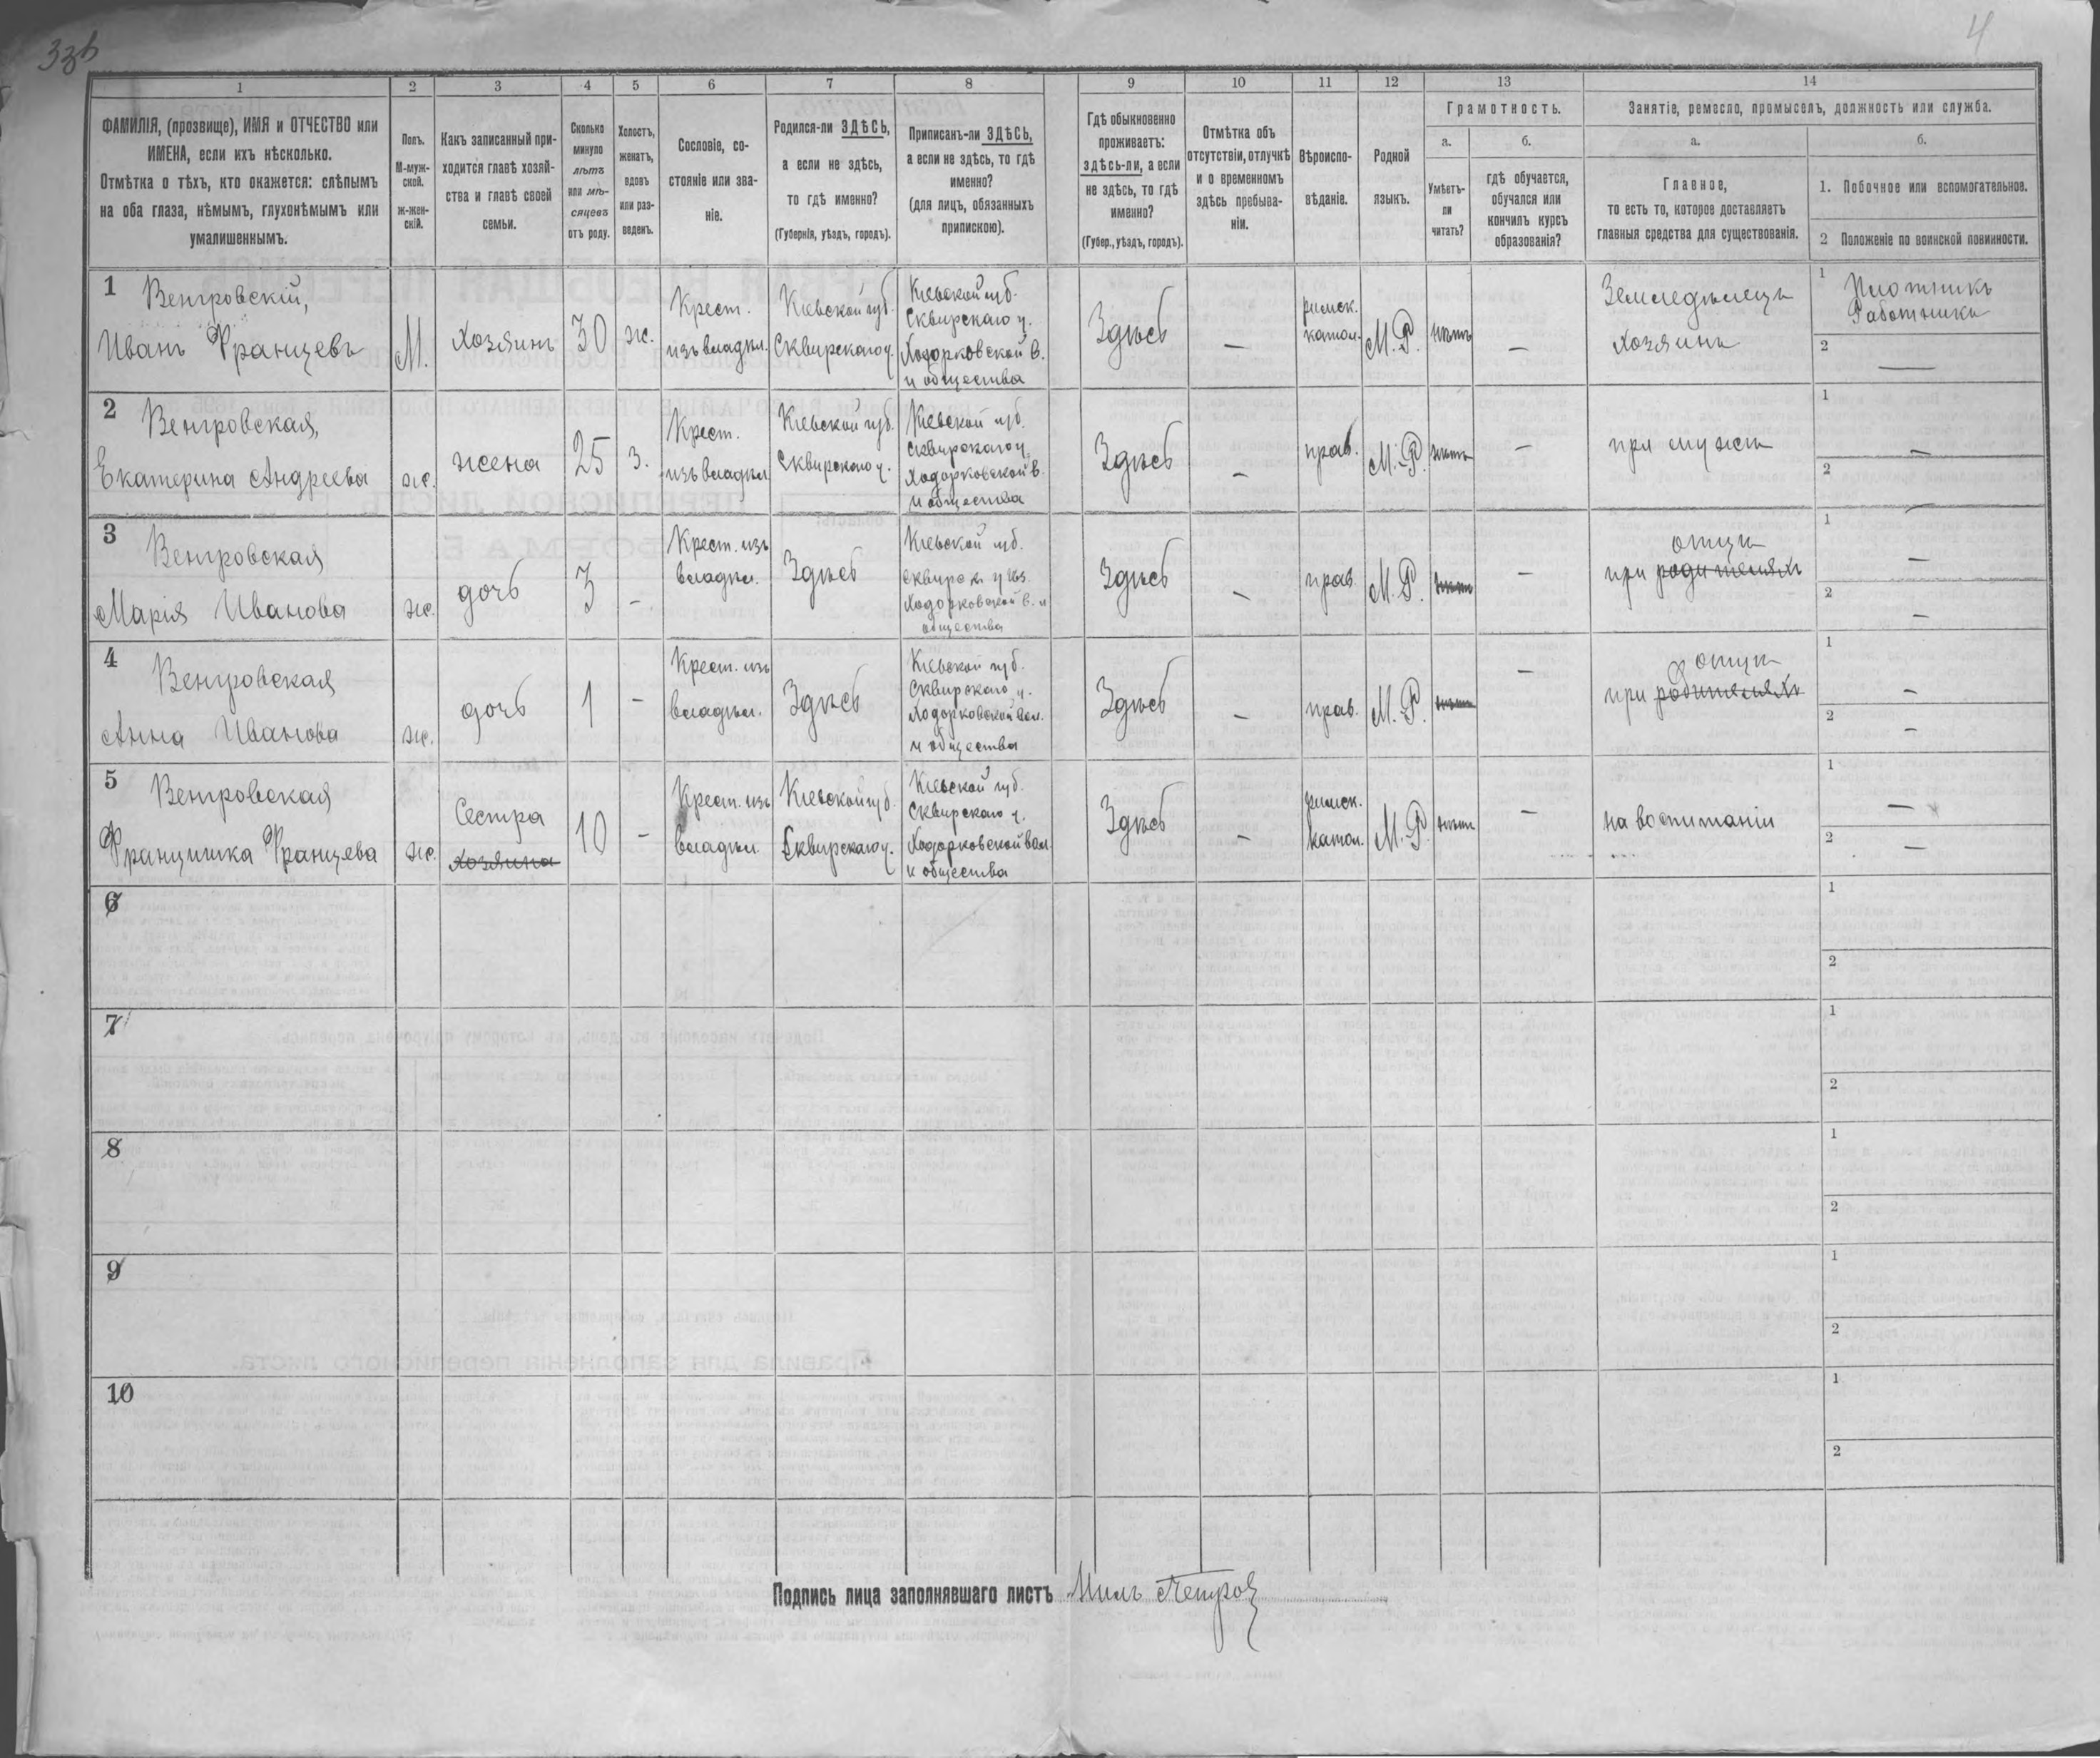 33б
4
1
2
3
4
5
6
7
8
9
10
11
12
13
14
ФАМИЛІЯ, (прозвище), ИМЯ и ОТЧЕСТВО или
ИМЕНА, если ихъ нѣсколько.
Отмѣтка о тѣхъ, кто окажется: слѣпымъ
на оба глаза, нѣмымъ, глухонѣмымъ или
умалишеннымъ.
Полъ.
М-муж-
ской.
ж-жен-
скій.
Какъ записанный при-
ходится главѣ хозяй-
ства и главѣ своей
семьи.
Сколько
минуло
лѣтъ
или мѣ-
сяцевъ
отъ роду.
Холостъ,
женатъ,
вдовъ
или раз-
веденъ.
Сословіе, со-
стояніе или зва-
ніе.
Родился-ли ЗДѢСЬ,
а если не здѣсь,
то гдѣ именно?
(Губернія, уѣздъ, городъ).
Приписанъ-ли ЗДѢСЬ,
а если не здѣсь, то гдѣ
именно?
(для лицъ, обязанныхъ
припискою).
Гдѣ обыкновенно
проживаетъ:
здѣсь-ли, а если
не здѣсь, то гдѣ
именно?
(Губер., уѣздъ, городъ).
Отмѣтка объ
отсутствіи, отлучкѣ
и о временномъ
здѣсь пребыва-
ніи.
Вѣроиспо-
вѣданіе.
Родной
языкъ.
Грамотность.
а.
Умѣетъ-
ли
читать?
б.
гдѣ обучается,
обучался или
кончилъ курсъ
образованія?
Занятіе, ремесло, промыселъ, должность или служба.
а.
Главное,
то есть то, которое доставляетъ
главныя средства для существованія.
б.
1. Побочное или вспомогательное.
2 Положеніе по воинской повинности.
1
Венгровскій,
Иванъ Францевъ
М.
Хозяинъ
30
ж.
Крест.
изъ владѣл.
Кіевской губ.
Сквирскаго у.
Кіевской губ.
Сквирскаго у.
Ходорковской в.
и общества
Здѣсь
—
римск.
катол.
М. Р.
нѣтъ
—
Земледѣлецъ
хозяинъ
1 Плотникъ
Работникъ
2
—
2
Венгровская,
Екатерина Андреева
ж.
жена
25
з.
Крест.
изъ владѣл.
Кіевской губ.
Сквирскаго у.
Кіевской губ.
Сквирскаго у.
Ходорковской в.
и общества
Здѣсь
—
прав.
М. Р.
нѣтъ
—
при мужѣ
1
—
2
—
3
Венгровская
Марія Иванова
ж.
дочь
3
—
Крест. изъ
владѣл.
Здѣсь
Кіевской губ.
Сквирск. у
Ходорковской в. и
общества
Здѣсь
—
прав.
М. Р.
нѣтъ
—
отцѣ
при родителяхъ
1
—
2
—
4
Венгровская
Анна Иванова
ж.
дочь
1
—
Крест. изъ
владѣл.
Здѣсь
Кіевской губ.
Сквирскаго у.
Ходорковской вол.
и общества
Здѣсь
—
прав.
М. Р.
нѣтъ
—
отцѣ
при родителяхъ
1
—
2
—
5
Венгровская
Францишка Францева
ж.
Сестра
хозяина
10
—
Крест. изъ
владѣл.
Кіевской губ.
Сквирскаго у.
Кіевской губ.
Сквирскаго у.
Ходорковской вол.
и общества
Здѣсь
—
римск.
катол.
М. Р.
нѣтъ
—
на воспитаніи
1
—
2
—
6
1
2
7
1
2
8
1
2
9
1
2
10
1
2
Подпись лица заполнявшаго листъ